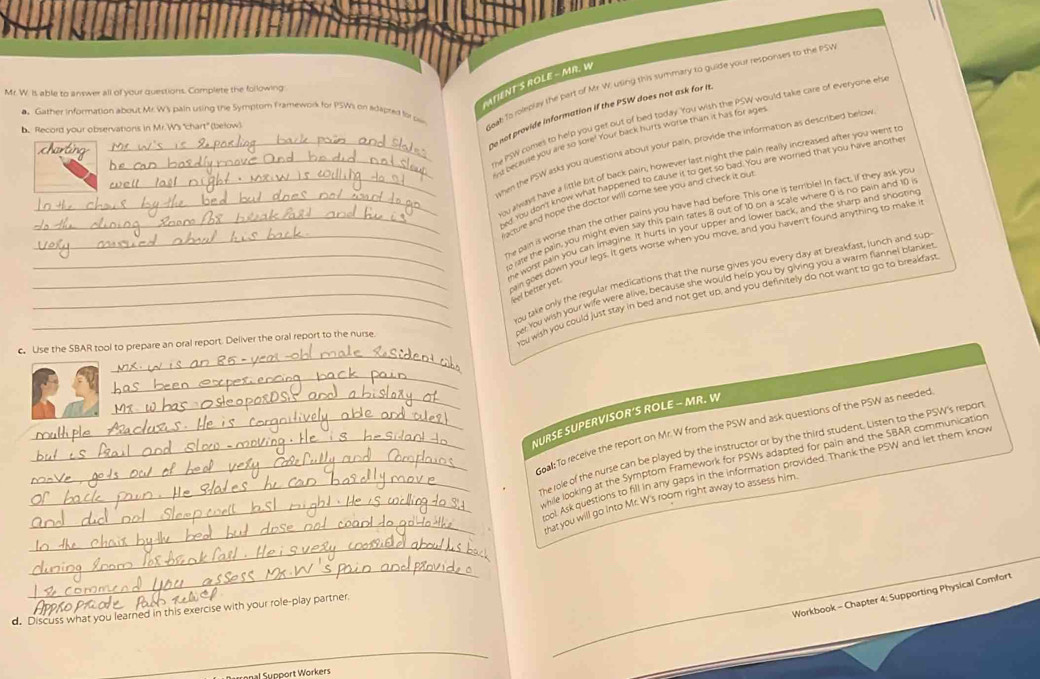 Mr. W. is able to answer all of your questions. Complete the following:
a. Gather information about Mr. W's pain using the Symptom Framework for PSWs on adapted for pain
b. Record your observations in Mr. W's "chart" (below).
charting
Mr W's is Reporting back pain and States
he can hardly move and he did not sleep
well last night. Mr. W is willing to sit
In the chair by the bed but does not want to go
to the dining Room for breakfast and he is
very about his back.
c. Use the SBAR tool to prepare an oral report. Deliver the oral report to the nurse.
Mr. W is an 85-year-old male Resident who
has been experiencing back pain
Mr. W has and a history of
multiple He is able and alert
but is frail and slow-moving. He is to
move, gets out of bed very carefully and Complains
or back pain. He States he can hardly move
and did not Sleep well last night. He is willing to sit
In the chair by the bed but dose not want to go to the
dining Room for breakfast. He is very about his back
I you assess Mr. W's pain and provide
Pain relief.
d. Discuss what you learned in this exercise with your role-play partner.
Support Workers
PATIENT'S ROLE – MR. W
Goal: To roleplay the part of Mr. W. using this summary to guide your responses to the PSW
Do not provide information if the PSW does not ask for it.
The PSW comes to help you get out of bed today. You wish the PSW would take care of everyone else
first because you are so sore! Your back hurts worse than it has for ages.
When the PSW asks you questions about your pain, provide the information as described below.
You always have a little bit of back pain, however last night the pain really increased after you went to
bed. You don't know what happened to cause it to get so bad. You are worried that you have another
fracture and hope the doctor will come see you and check it out.
The pain is worse than the other pains you have had before. This one is terrible! In fact, if they ask you
to rate the pain, you might even say this pain rates 8 out of 10 on a scale where 0 is no pain and 10 is
the worst pain you can imagine. It hurts in your upper and lower back, and the sharp and shooting
pain goes down your legs. It gets worse when you move, and you haven't found anything to make it
feel better yet.
You take only the regular medications that the nurse gives you every day at breakfast, lunch and sup-
per. You wish your wife were alive, because she would help you by giving you a warm flannel blanket.
You wish you could just stay in bed and not get up, and you definitely do not want to go to breakfast.
NURSE SUPERVISOR'S ROLE – MR. W
Goal: To receive the report on Mr. W from the PSW and ask questions of the PSW as needed.
The role of the nurse can be played by the instructor or by the third student. Listen to the PSW's report
while looking at the Symptom Framework for PSWs adapted for pain and the SBAR communication
tool. Ask questions to fill in any gaps in the information provided. Thank the PSW and let them know
that you will go into Mr. W's room right away to assess him.
Workbook – Chapter 4: Supporting Physical Comfort